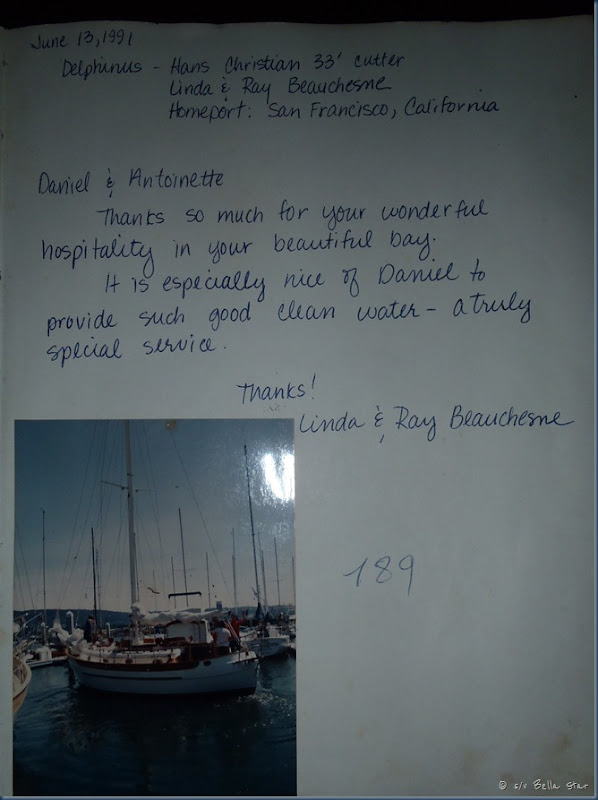 June 13, 1991
Delphinus - Hans Christian 33' cutter
Linda & Ray Beauchesne
Homeport: San Francisco, California
Daniel & Antoinette
Thanks so much for your wonderful
hospitality in your beautiful bay.
It is especially nice of Daniel to
provide such good clean water - a truly
special service.
Thanks!
Linda & Ray Beauchesne
189
© s/v Bella Star